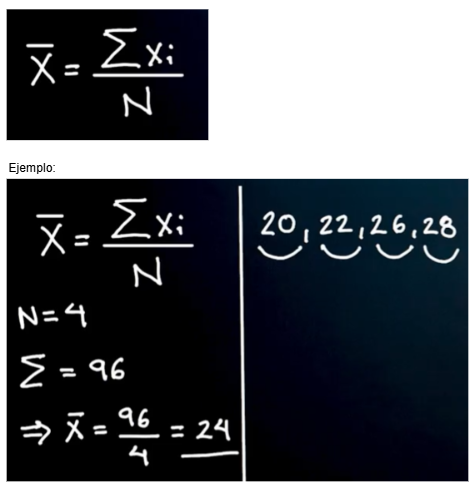 X̄ = Σxᵢ / N
Ejemplo:
X̄ = Σxᵢ / N
N=4
Σ = 96
⇒ X̄ = 96/4 = 24
20, 22, 26, 28